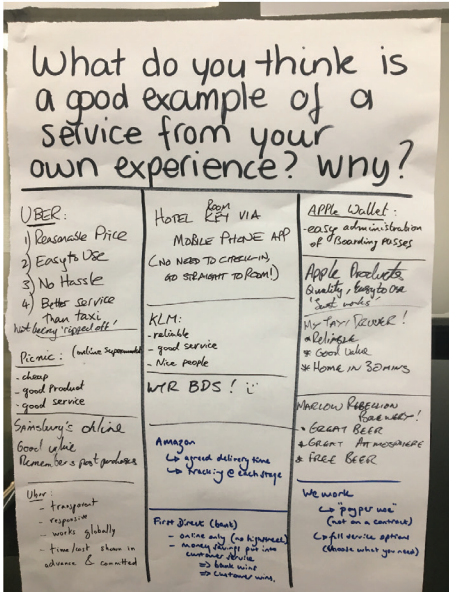 What do you think is
a good example of a
service from your
own experience? Why?
UBER:
1) Reasonable Price
2) Easy to Use
3) No Hassle
4) Better service
than taxi
Not being 'ripped off'
Picnic: (online supermarket)
- cheap
- good product
- good service
Sainsbury's online
Good value
Remembers past purchases
Uber
- transparent
- responsive
- works globally
- time/cost shown in
advance & committed
HOTEL ROOM KEY VIA
MOBILE PHONE APP
(NO NEED TO CHECK-IN,
GO STRAIGHT TO ROOM!)
KLM:
- reliable
- good service
- Nice people
BDS!
Amazon
↳ agreed delivery time
↳ tracking @ each stage
First Direct (bank)
- online only (no highstreet)
- money savings put into
customer service
=> bank wins
=> customer wins.
APPLE Wallet:
- easy administration
of Boarding passes
Apple Products
Quality, Easy to Use
'Just works'
MY TAXI DRIVER!
* RELIABLE
* Good value
* HOME IN 30 MINS
MARLOW REBELLION
BREWERY!
* GREAT BEER
* GREAT ATMOSPHERE
* FREE BEER
We work
↳ "pay per use"
(not on a contract)
↳ full service options
(choose what you need)